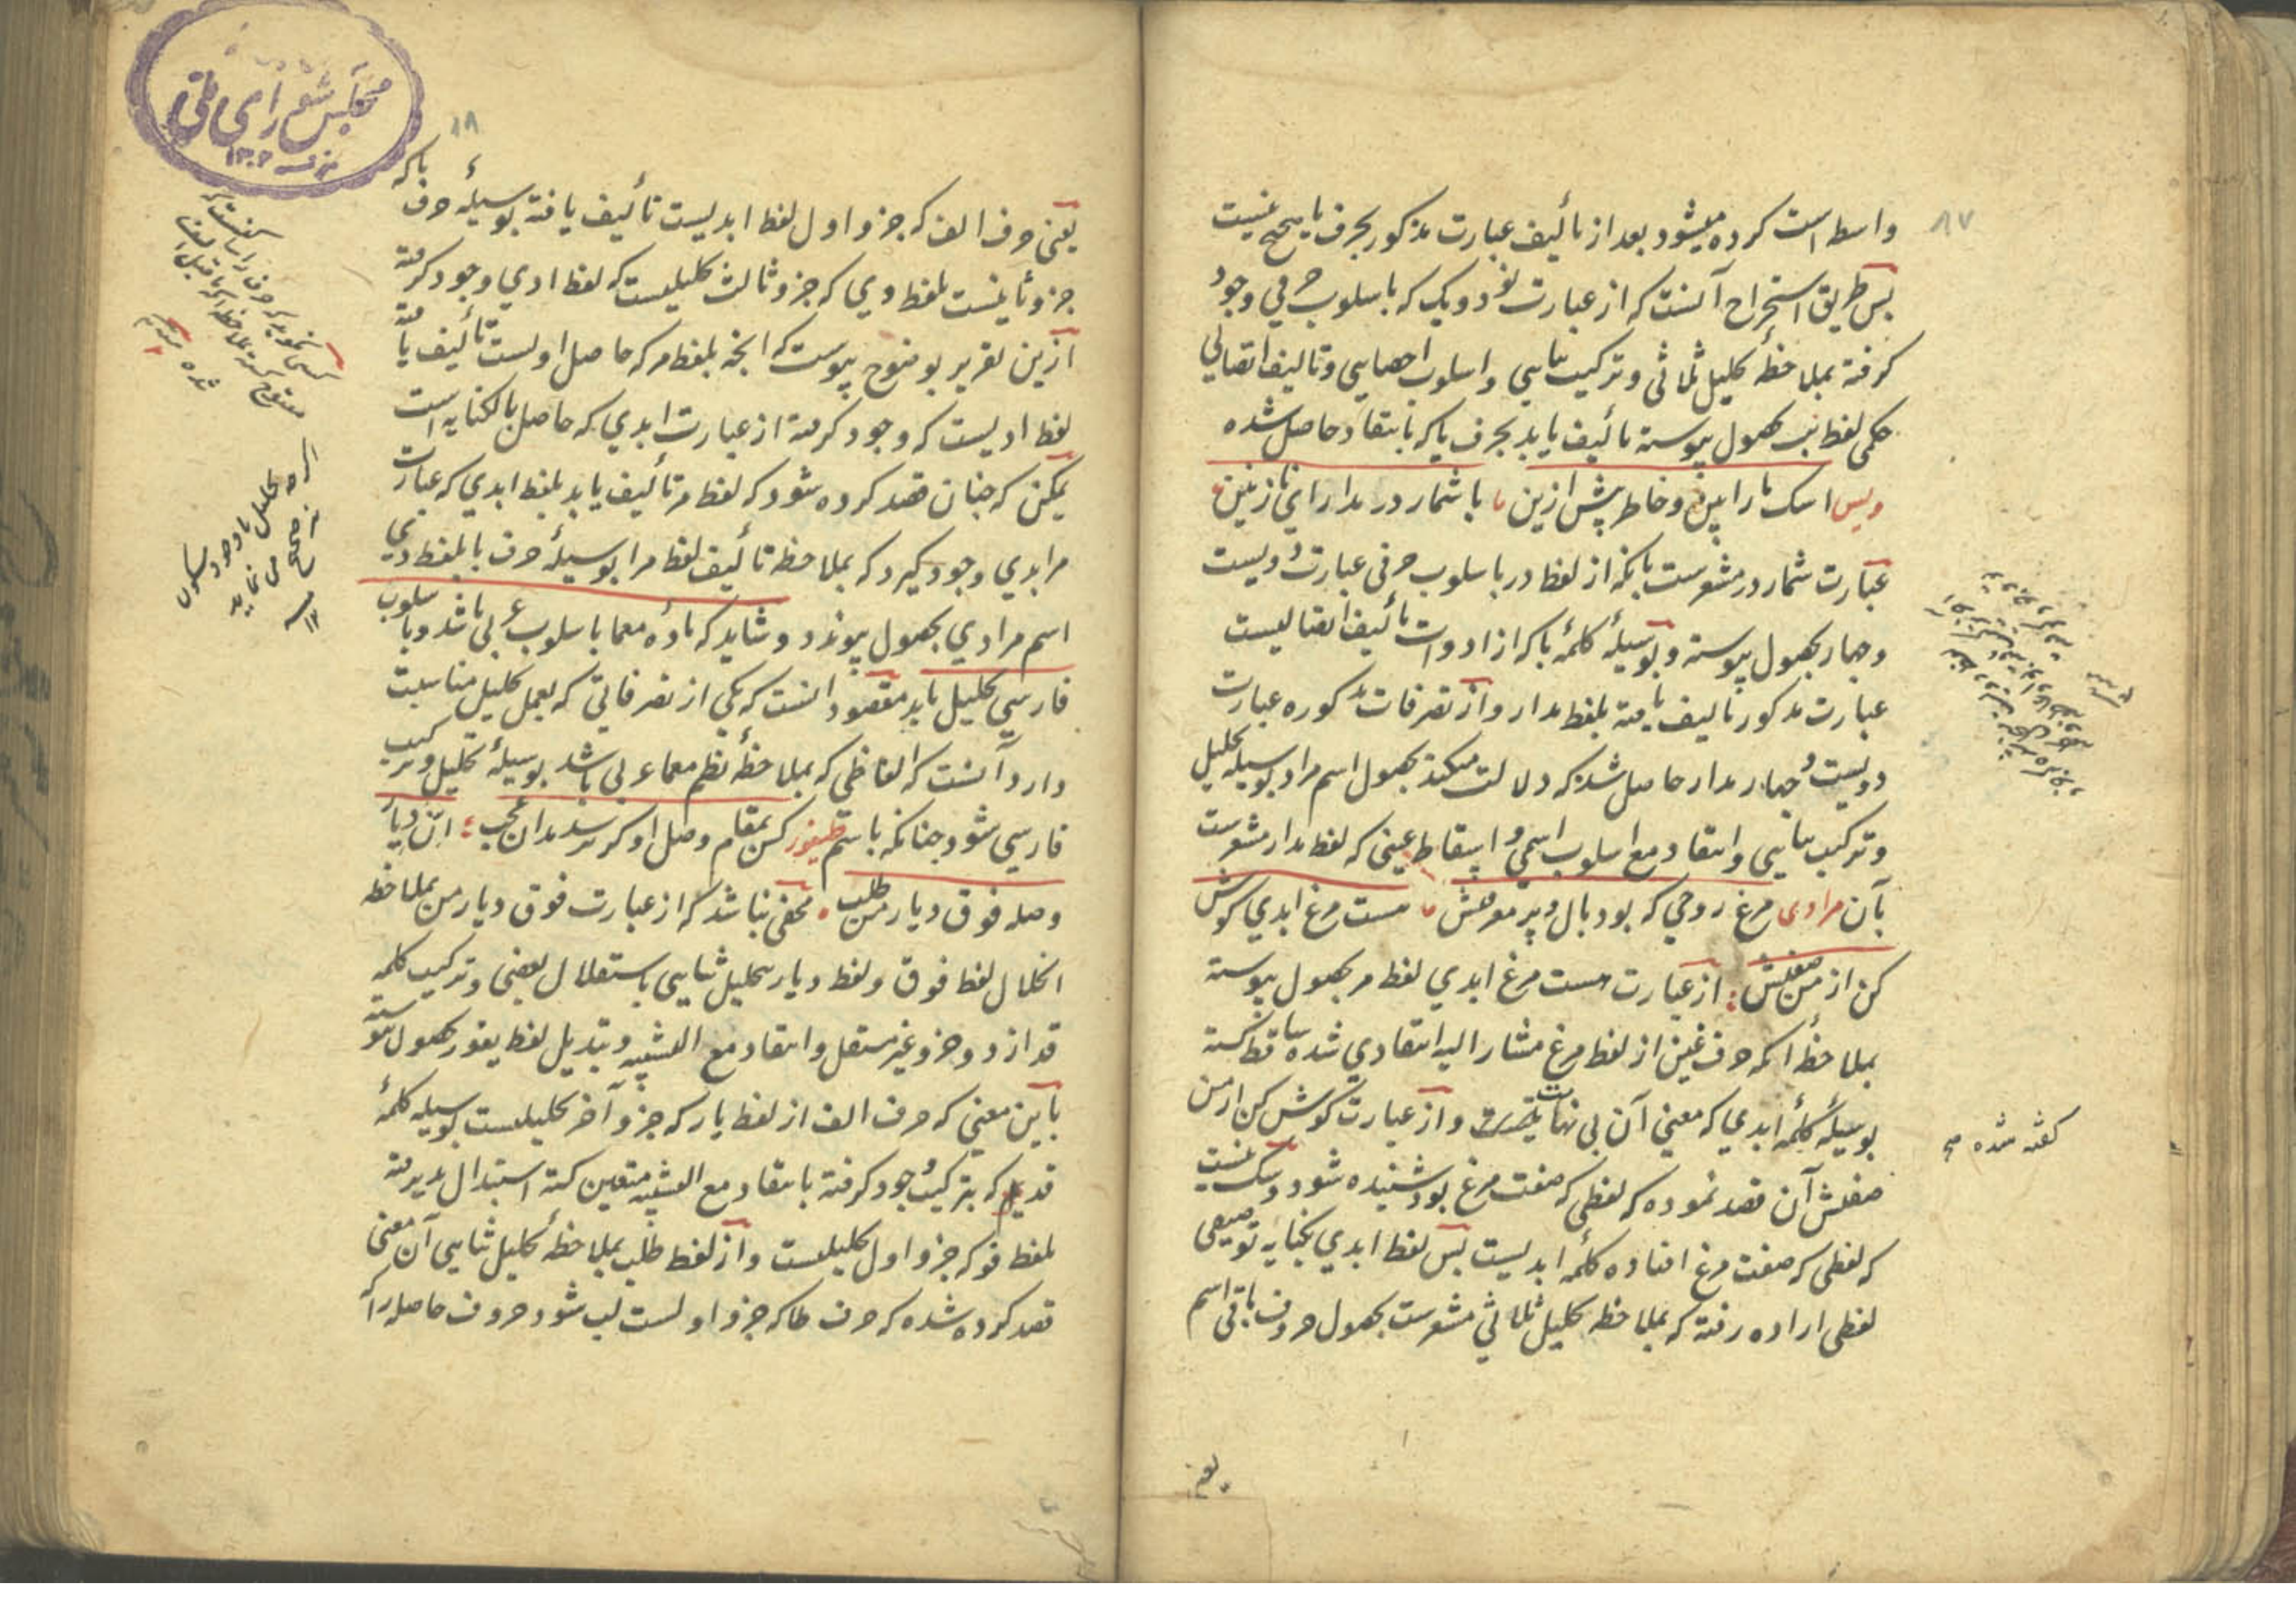 ۸۷
واسط است کرده میشود بعد از تألیف عبارت مذکور بحرف یا صحیح نیست
پس طریق استخراج آنست که از عبارت دو یک که باسلوب حرفی وجود
کرفته بملاحظهٔ تحلیل ثلاثی و ترکیب ثنایی و اسلوب احصایی و تالیف اتصالی
حکمی لفظ بحصول پیوسته تألیف یابد بحرف یا که بانتقاد حاصل شده
ویس اسک بارا و خاطر پیش ازین با شمار در مدار ای نازنین
عبارت شمار در مشعرست بانکه از لفظ در باسلوب حرفی عبارت دویست
و چهار بحصول پیوسته و بوسیلهٔ کلمهٔ با که از ادوات تألیف اتصالیست
عبارت مذکور تالیف یافته بلفظ مدار و از تصرفات مذکوره عبارت
دویست و چهار مدار حاصل شد که دلالت میکند بحصول اسم مراد بوسیله تحلیل
و ترکیب ثنایی و انتقاد مع اسلوب اسمی و اسقاط عینی که لفظ مدار مشعرست
بآن مرادی مرغ روحی که بود بال و پر معرفتش هست مرغ ابدی کوش
کن از من صفتش از عبارت هست مرغ ابدی لفظ مر بحصول پیوسته
بملاحظهٔ انکه حرف غین از لفظ مرغ مشار الیه انتقادی شده ساقط کشته
بوسیلهٔ کلمهٔ ابدی که معنی آن بی نهایت و از عبارت کوش کن از من
صفتش آن قصد نموده که لفظی که صفت مرغ بود شنیده شود و شک نیست
که لفظی که صفت مرغ افتاده کلمهٔ ابدیست پس لفظ ابدی بکنایه توصیفی
لفظی اراده رفته که بملاحظه تحلیل ثلاثی مشعرست بحصول حروف باقی اسم
کفته شده
یعنی
۸۸
یعنی حرف الف که جزو اول لفظ ابدیست تألیف یافته بوسیلهٔ حرف با که
جزو ثانیست بلفظ دی که جزو ثالث تحلیلیست که لفظ ادی وجود کرفته
ازین تقریر بوضوح پیوست که انچه بلفظ مر که حاصل اولست تألیف یافته
لفظ ادیست که وجود کرفته از عبارت ابدی که حاصل بالکنایه است
یمکن که چنان قصد کرده شود که لفظ مر تألیف یابد بلفظ ابدی که عبارت
مر ابدی وجود کیرد که بملاحظه تألیف لفظ مرا بوسیلهٔ حرف با بلفظ دی
اسم مرادی بحصول پیوندد و شاید که مادهٔ معما باسلوب عربی باشد و باسلوب
فارسی تحلیل یابد مقصود انست که یکی از تصرفاتی که بعمل تحلیل مناسبت
دارد آنست که الفاظی که بملاحظهٔ نظم معما عربی باشد بوسیلهٔ تحلیل و ترکیب
فارسی شود چنانکه باسم طیفور کس بمقام وصل او کر برسد مدان عجب انّ دیار
وصله فوق دیار من طلب مخفی نباشد که از عبارت فوق دیار من بملاحظه
انحلال لفظ فوق و لفظ دیار بتحلیل ثنایی باستقلال بعضی و ترکیب کلمه
قد از دو جزو غیر مستقل و انتقاد مع التشبیه و تبدیل لفظ یفور بحصول پیوسته
باین معنی که حرف الف از لفظ یار که جزو آخر تحلیلیست بوسیله کلمهٔ
قد که بترکیب وجود کرفته بانتقاد مع التشبیه متعین کشته استبدال پذیرفته
بلفظ فو که جزو اول تحلیلیست و از لفظ طلب بملاحظهٔ تحلیل ثنایی آن معنی
قصد کرده شده که حرف طا که جزو اولست لب شود حروف حاصله را که
اکر چه تحلیل باوجود سکون
نیز صحیح می نماید
۱۲
مجلس شورای ملی
۱۳۰۲